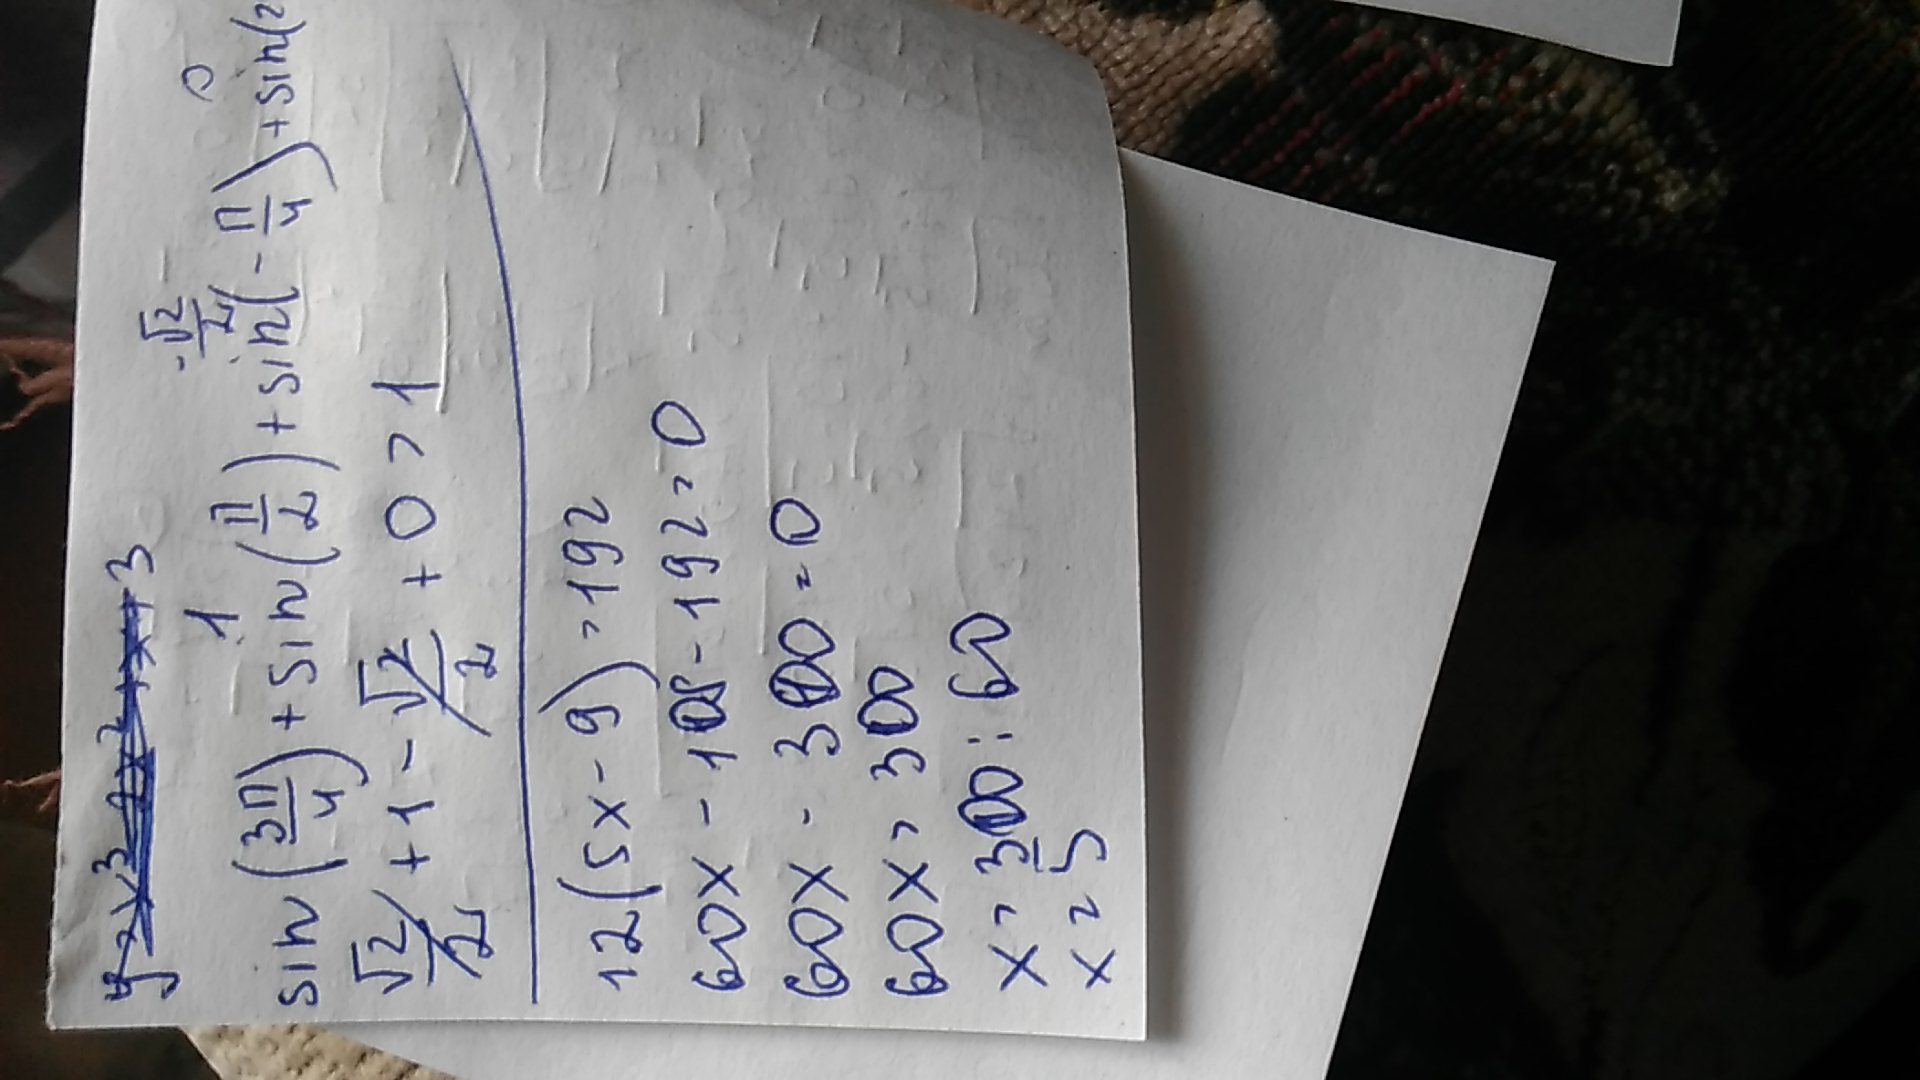 y=x³+x²+x+3
1 -√2/2 0
sin(3π/4)+sin(π/2)+sin(-π/4)+sin(2
√2/2+1-√2/2+0=1
12(5x-9)=192
60x-108-192=0
60x-300=0
60x=300
x=300:60
x=5